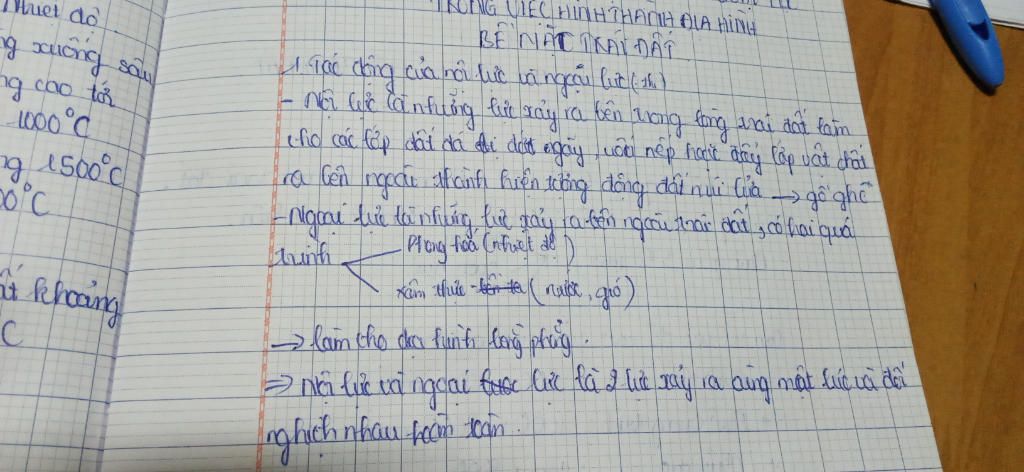 Nhiệt độ
ng xuống sâu
ng cao tới
1000°C
ng 1500°C
00°C
ất khoảng
C
TRONG VIỆC HÌNH THÀNH ĐỊA HÌNH
BỀ MẶT TRÁI ĐẤT
1. Tác động của nội lực và ngoại lực
- Nội lực là những lực xảy ra bên trong lòng trái đất làm
cho các lớp đất đá bị đứt gãy, uốn nếp hoặc đẩy lớp vật chất
ra bên ngoài thành hiện tượng động đất núi lửa → gồ ghề
- Ngoại lực là những lực xảy ra bên ngoài trái đất, có hai quá
trình
Phong hoá (nhiệt độ)
xâm thực (nước, gió)
→ làm cho địa hình bằng phẳng.
⇒ Nội lực và ngoại lực là 2 lực xảy ra cùng một lúc và đối
nghịch nhau hoàn toàn.